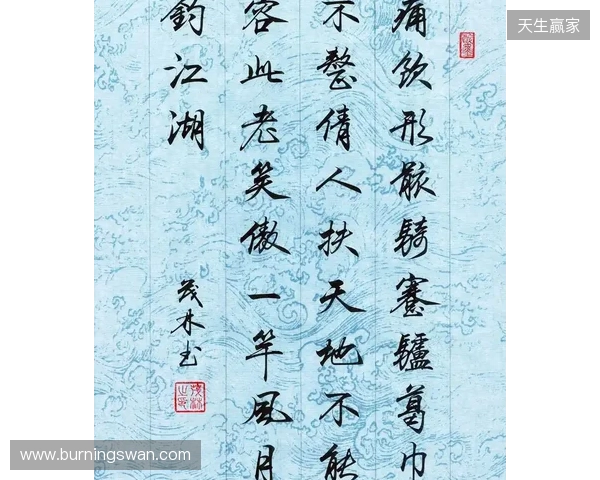 天生赢家
痛飲形骸騎蹇驢葛巾
不整倩人扶天地不能
容此老笑傲一竿風月
釣江湖
茂林书
www.burningswan.com